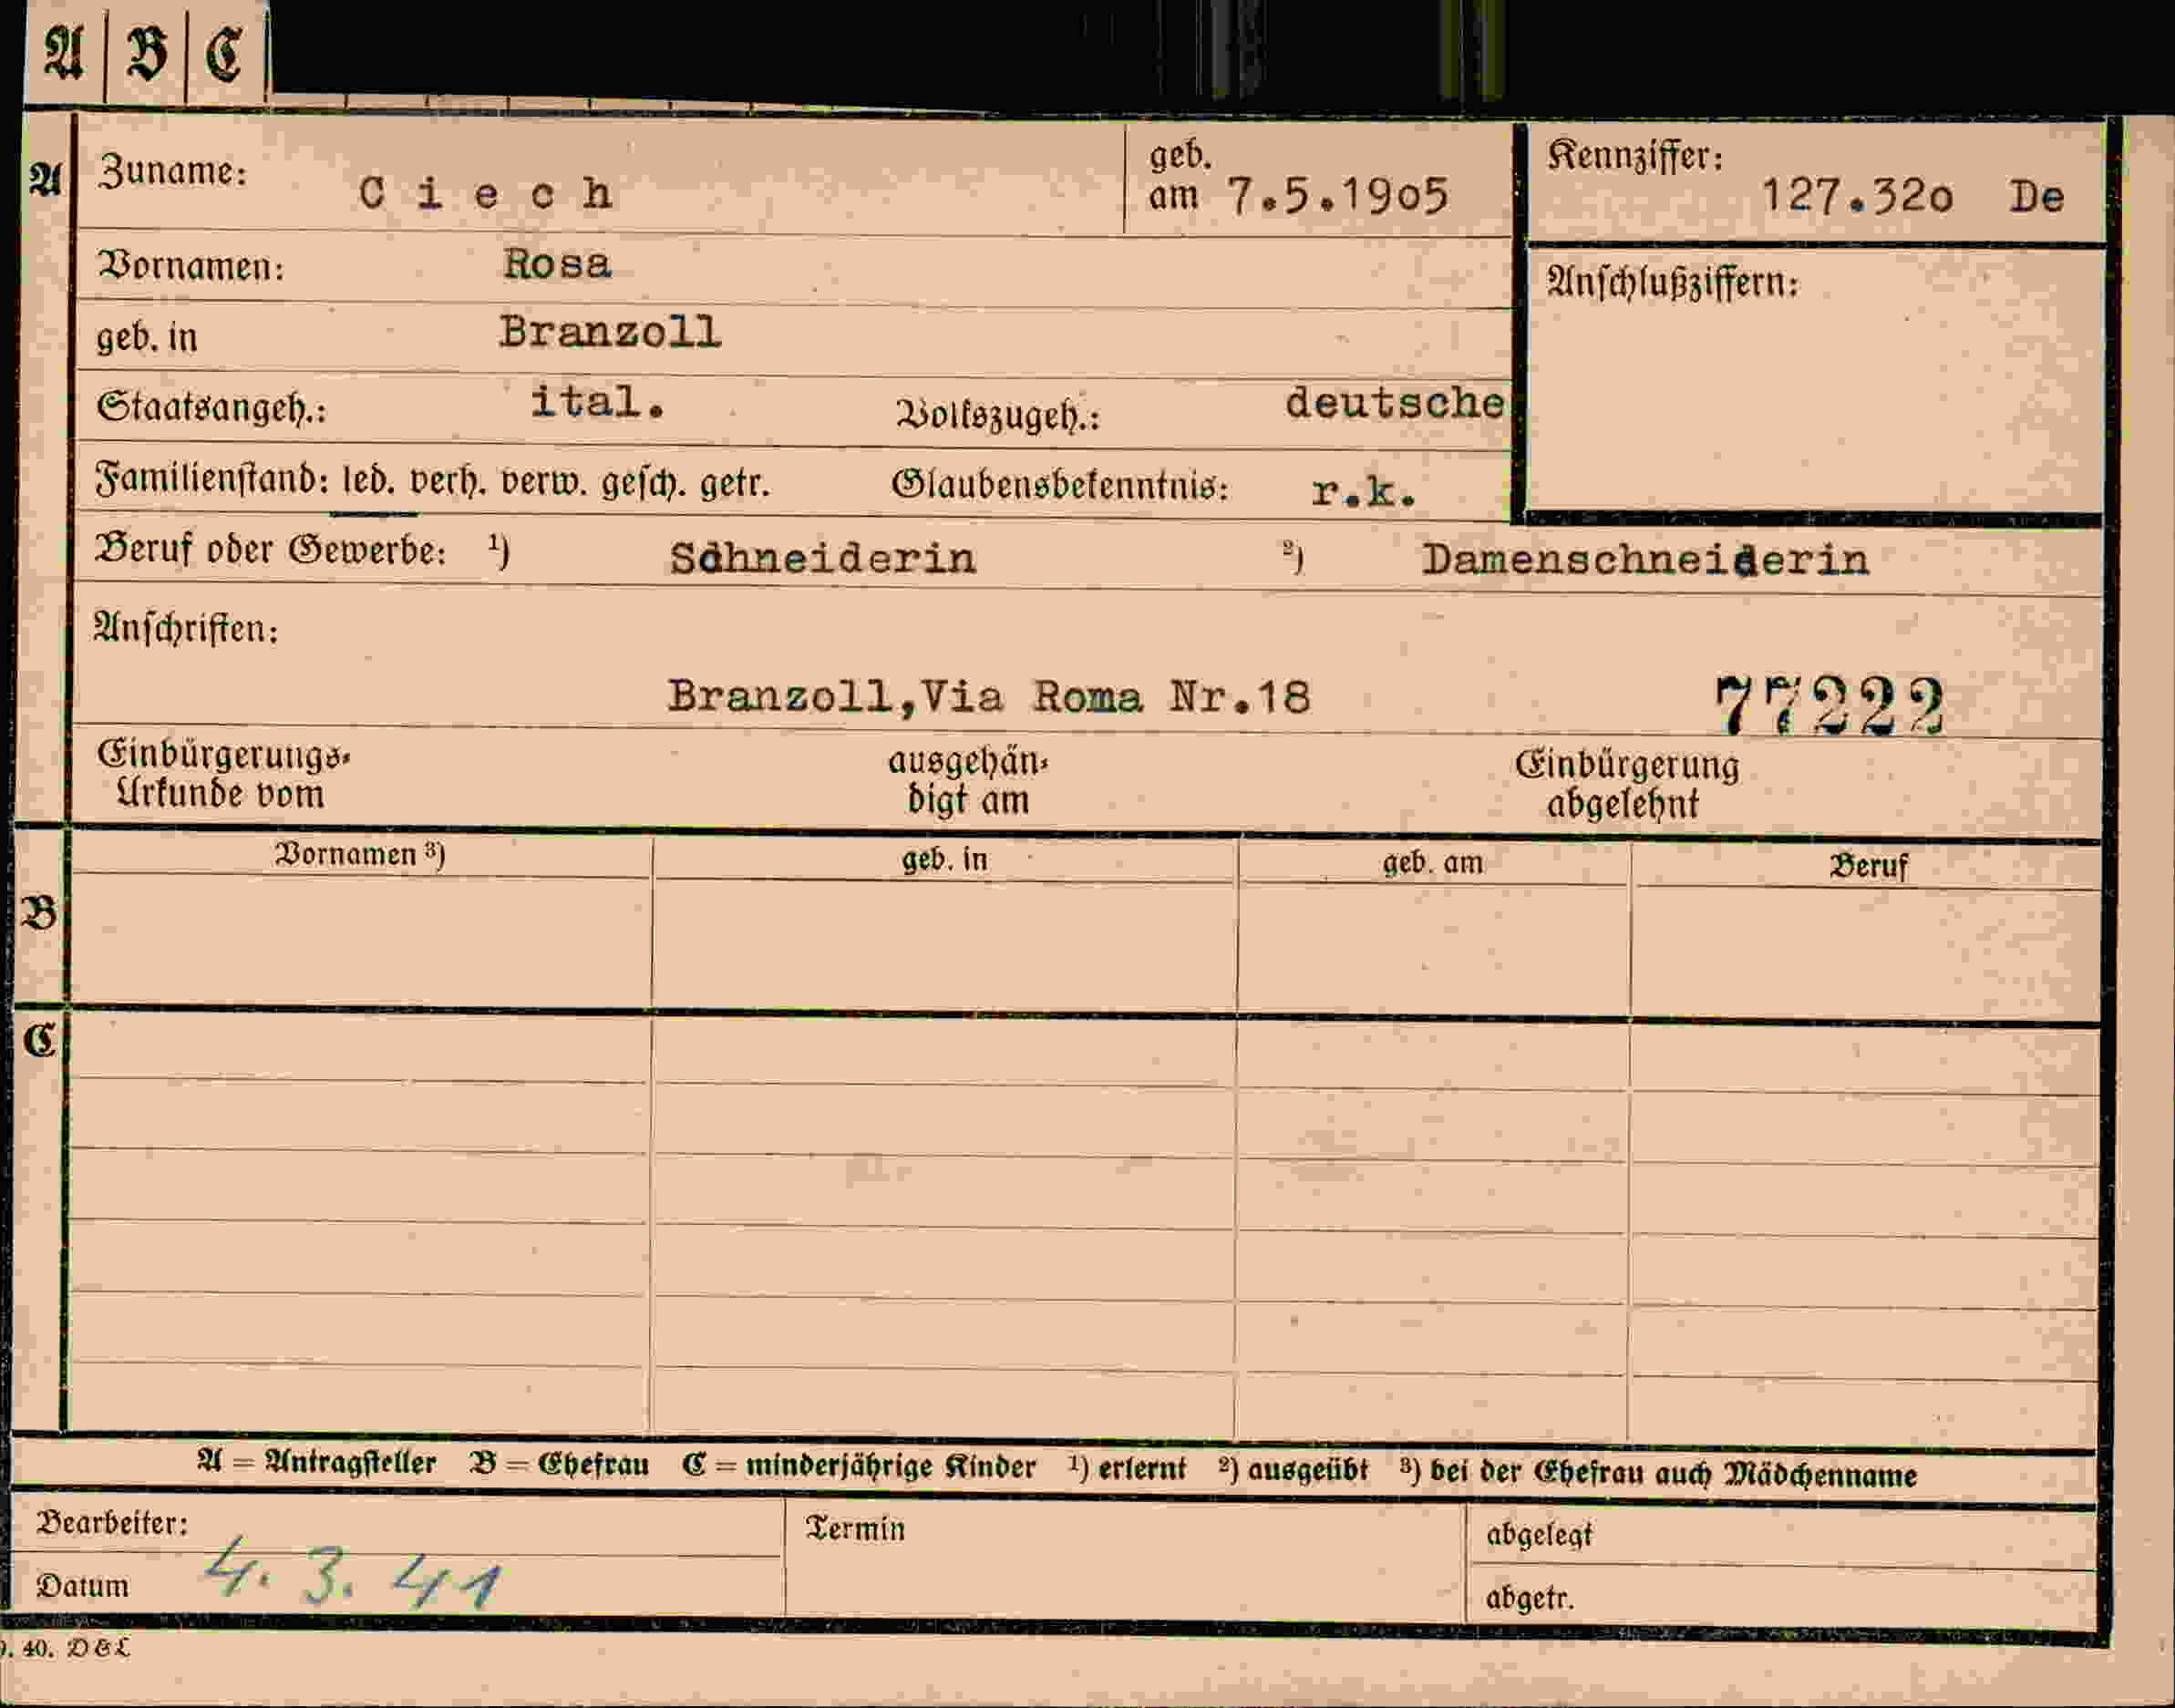 A B C
A Zuname: Ciech geb. am 7.5.1905 Kennziffer: 127.320 De
Vornamen: Rosa Anschlußziffern:
geb. in Branzoll
Staatsangeh.: ital. Volkszugeh.: deutsche
Familienstand: led. verh. verw. gesch. getr. Glaubensbekenntnis: r.k.
Beruf oder Gewerbe: ¹) Schneiderin ²) Damenschneiderin
Anschriften:
Branzoll,Via Roma Nr.18 77222
Einbürgerungs- ausgehän- Einbürgerung
Urkunde vom digt am abgelehnt
Vornamen ³) geb. in geb. am Beruf
B
C
A = Antragsteller B = Ehefrau C = minderjährige Kinder ¹) erlernt ²) ausgeübt ³) bei der Ehefrau auch Mädchenname
Bearbeiter: Termin abgelegt
Datum 4. 3. 41 abgetr.
. 40. D&L